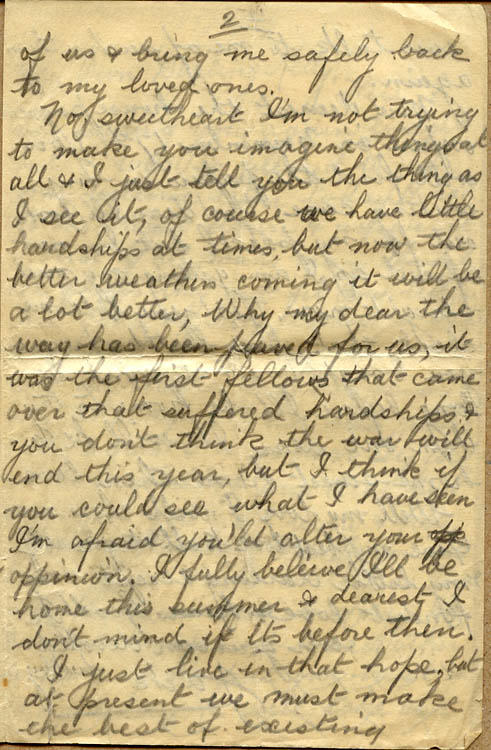 2
of us & bring me safely back
to my loved ones.
No, sweetheart I'm not trying
to make you imagine things at
all & I just tell you the thing as
I see it, of course we have little
hardships at times, but now the
better weathers coming it will be
a lot better, Why my dear the
way has been paved for us, it
was the first fellows that came
over that suffered hardships, &
you don't think the war will
end this year, but I think if
you could see what I have seen
I'm afraid you'ld alter your
oppinion. I fully beleive I'll be
home this summer & dearest I
don't mind if its before then.
I just live in that hope, but
at present we must make
the best of existing